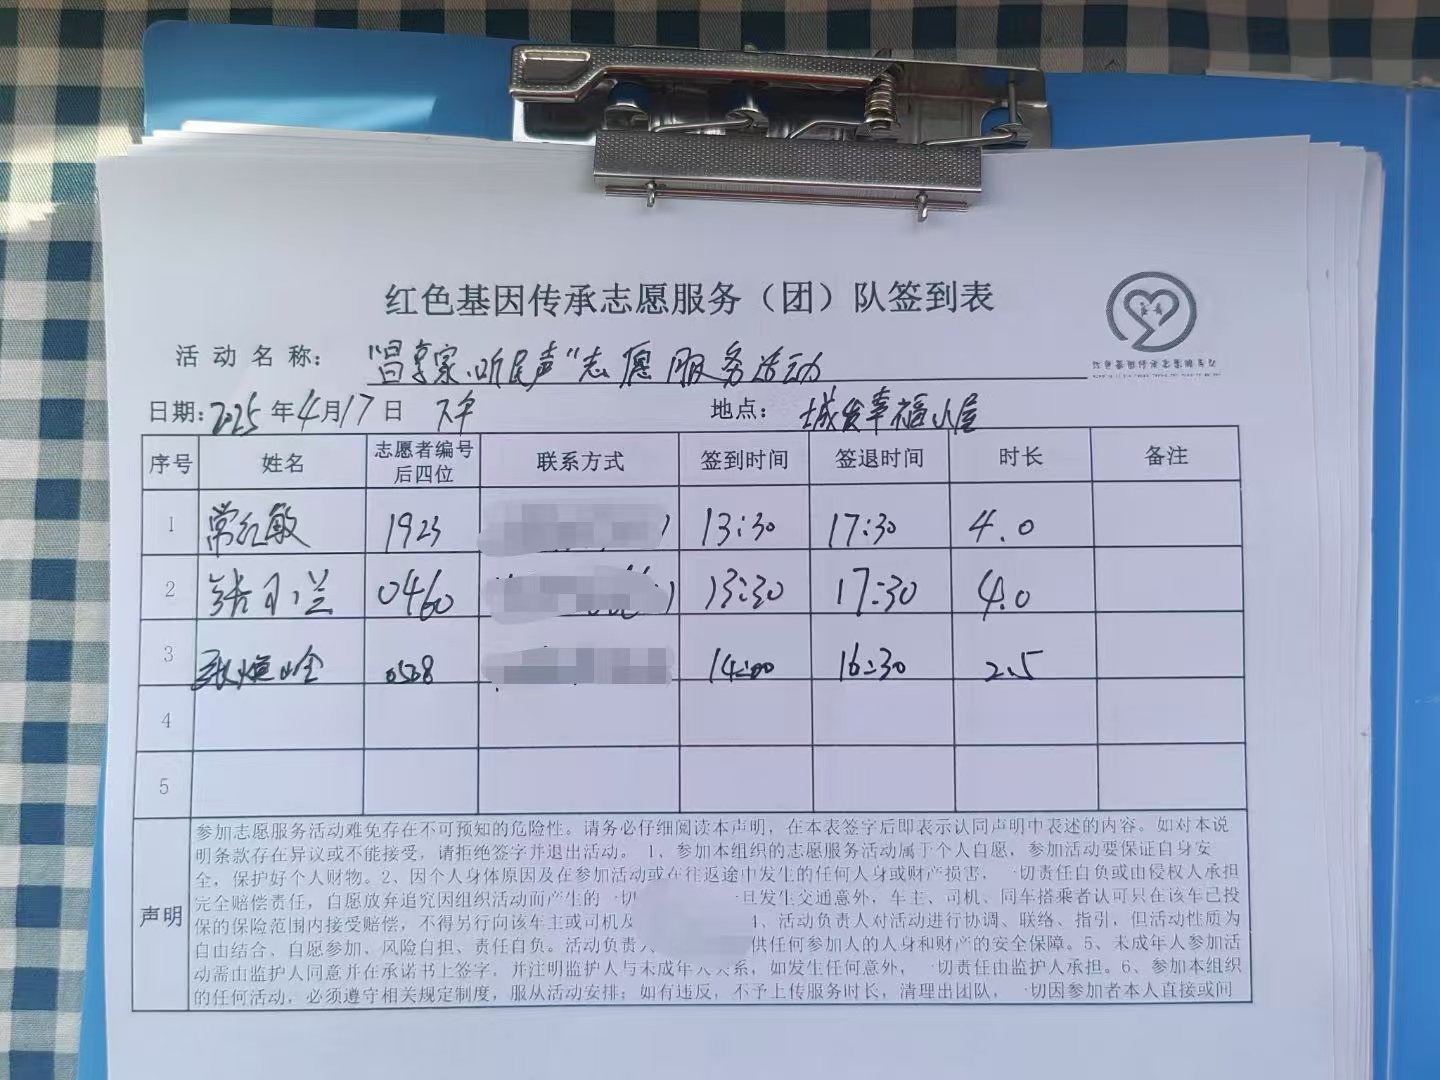 红色基因传承志愿服务（团）队签到表
活动名称："昌享家、听民声"志愿服务活动
日期：2025年4月17日 下午 地点：城发幸福小屋
序号 姓名 志愿者编号后四位 联系方式 签到时间 签退时间 时长 备注
1 常红敏 1923 13:30 17:30 4.0
2 张小兰 0460 13:30 17:30 4.0
3 0528 14:00 16:30 2.5
4
5
声明
参加志愿服务活动难免存在不可预知的危险性。请务必仔细阅读本声明，在本表签字后即表示认同声明中表述的内容。如对本说
明条款存在异议或不能接受，请拒绝签字并退出活动。 1、参加本组织的志愿服务活动属于个人自愿，参加活动要保证自身安
全，保护好个人财物。2、因个人身体原因及在参加活动或在往返途中发生的任何人身或财产损害，一切责任自负或由侵权人承担
完全赔偿责任，自愿放弃追究因组织活动而产生的一切 旦发生交通意外，车主、司机、同车搭乘者认可只在该车已投
保的保险范围内接受赔偿，不得另行向该车主或司机及 4、活动负责人对活动进行协调、联络、指引，但活动性质为
自由结合、自愿参加、风险自担、责任自负。活动负责人 供任何参加人的人身和财产的安全保障。5、未成年人参加活
动需由监护人同意并在承诺书上签字，并注明监护人与未成年人关系，如发生任何意外，一切责任由监护人承担。6、参加本组织
的任何活动，必须遵守相关规定制度，服从活动安排；如有违反，不予上传服务时长，清理出团队，一切因参加者本人直接或间